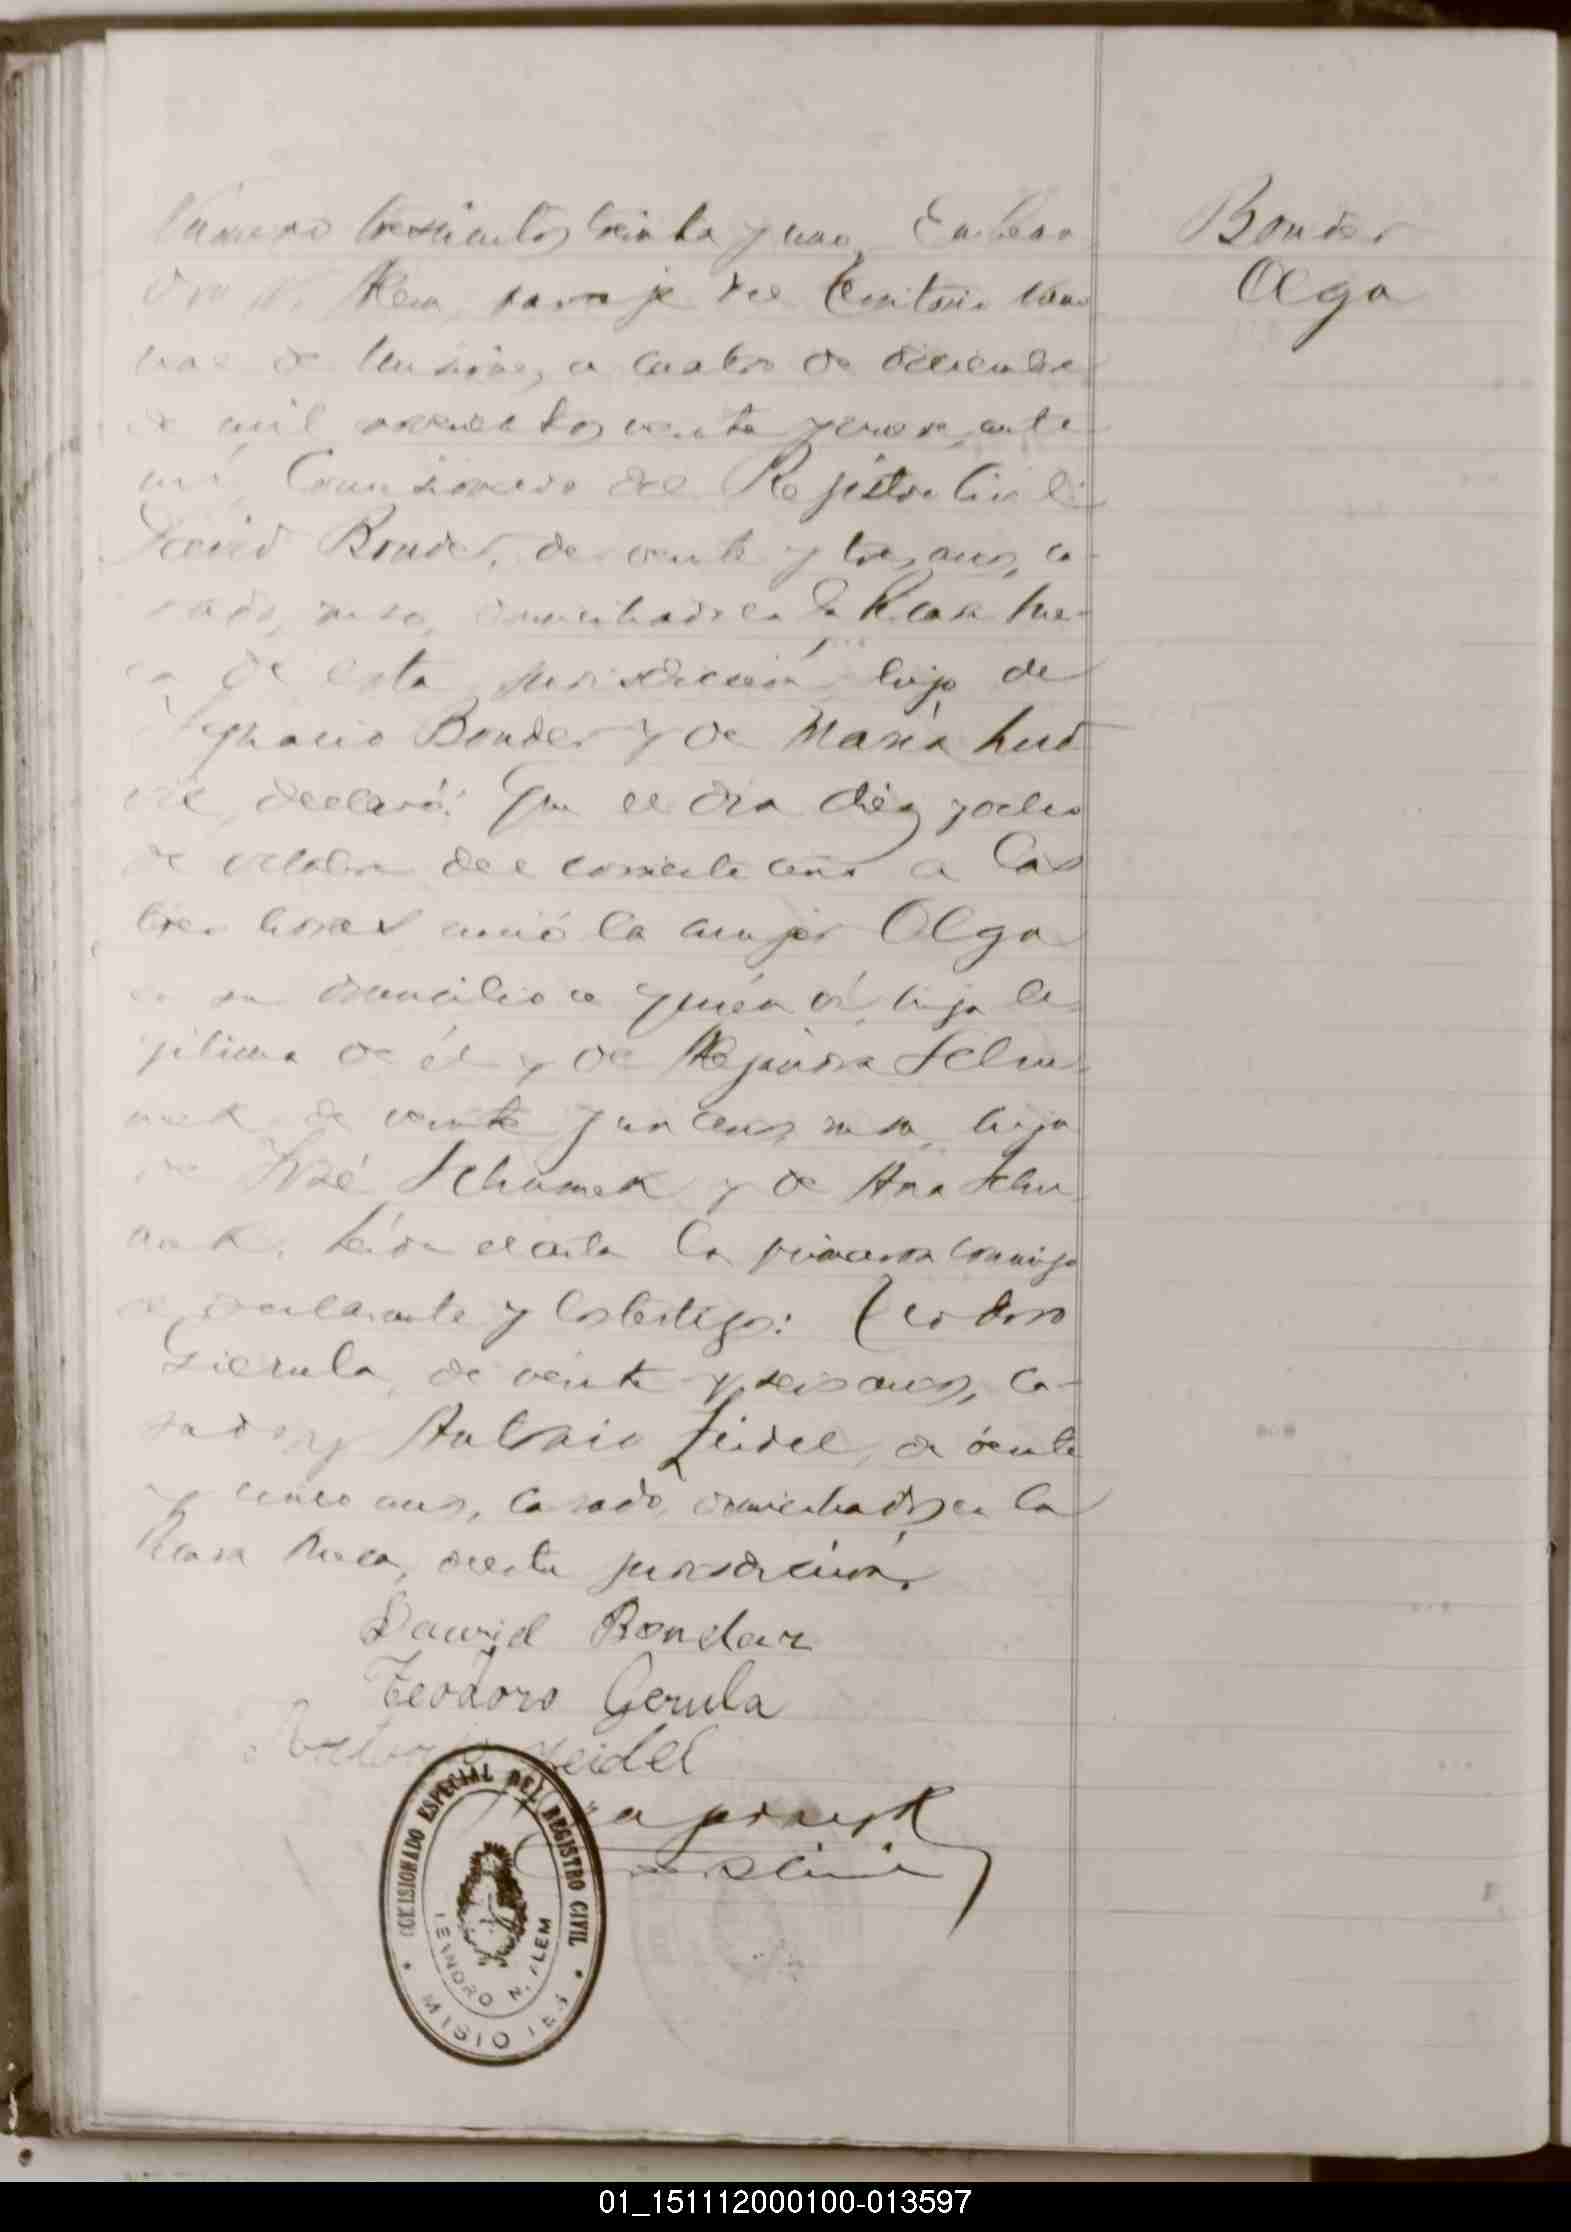 Número trescientos treinta y uno. En Lean
dro N. Alem, paraje del Territorio Nacio
nal de Misiones, a cuatro de diciembre
de mil novecientos veinte y nueve, ante
mí, Comisionado del Rejistro Civil:
David Bonder, de veinte y tres anos, ca-
sado, ruso, domiciliado en la Picada Me-
ca de esta jurisdicción, hijo de
Ignacio Bonder y de María
declaró: Que el dia diéz y ocho
de octubre del corriente año a las
tres horas nació la mujer Olga
en su domicilio a quién ví, hija le-
jitima de él y de Alejandra Schu-
mek de veinte y un anos, rusa, hija
de José Schumek y de Ana Schu-
mek. Leida el acta la firmaron conmigo
el declarante y los testigos: Teodoro
Gierula, de veinte y seis anos, ca-
sado y Antonio Zeidel, de veinte
y cinco anos, casado, domiciliados en la
Meca, de esta jurisdicción.
Dawid Bondar
Teodoro Gerula
Zeidel
COMISIONADO ESPECIAL DEL REGISTRO CIVIL
LEANDRO N. ALEM
MISIONES
Bonder
Olga
01_151112000100-013597